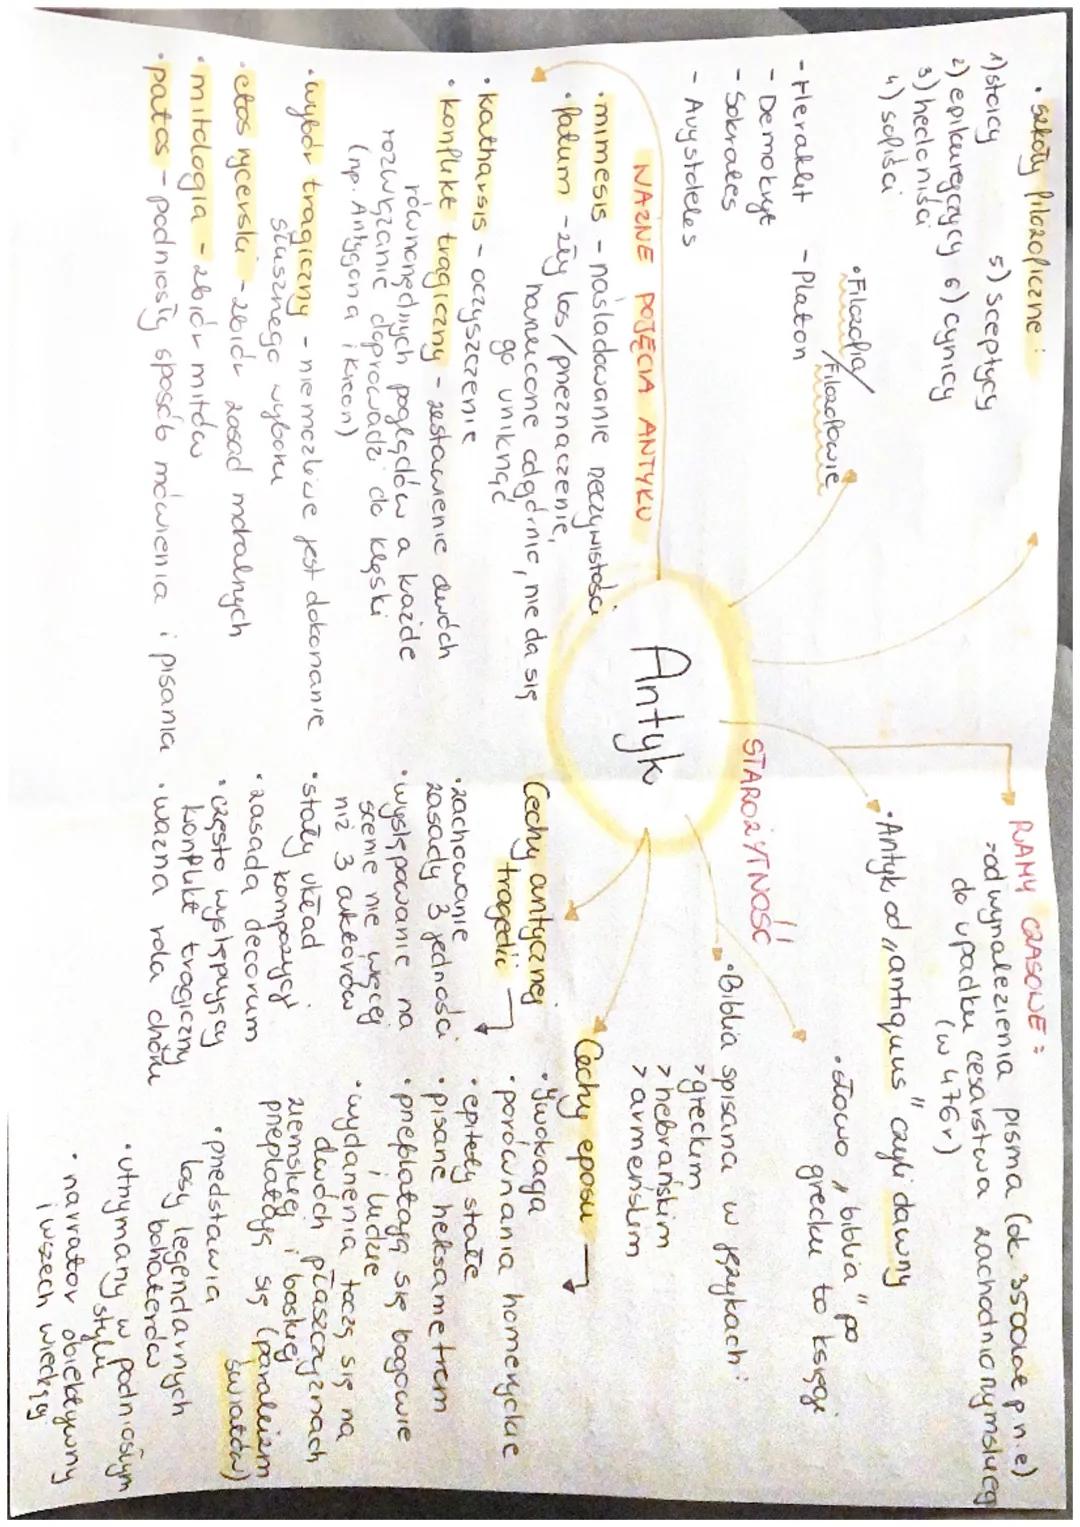 • szkoły filozoficzne:
1) stoicy 5) sceptycy
2) epikurejczycy 6) cynicy
3) hedoniści
4) sofiści
• Filozofia/
Filozofowie
- Heraklit - Platon
- Demokryt
- Sokrates
- Arystoteles
WAŻNE POJĘCIA ANTYKU
• mimesis - naśladowanie rzeczywistości
• fatum - zły los/przeznaczenie,
narzucone odgórnie, nie da się
go uniknąć
• katharsis - oczyszczenie
• konflikt tragiczny - zestawienie dwóch
równorzędnych poglądów a każde
rozwiązanie doprowadzi do klęski
(np. Antygona i Kreon)
• wybór tragiczny - niemożliwe jest dokonanie
słusznego wyboru
• etos rycerski - zbiór zasad moralnych
• mitologia - zbiór mitów
• patos - podniosły sposób mówienia i pisania
Antyk
STAROŻYTNOŚĆ
RAMY CZASOWE:
→ od wynalezienia pisma (ok. 3500 lat p.n.e)
do upadku cesarstwa zachodniorzymskieg
(w 476r)
• Antyk od "antiquus" czyli dawny
• słowo "biblia" po
grecku to księgi
• Biblia spisana w językach:
> greckim
> hebrańskim
> armeńskim
Cechy antycznej
tragedii
• zachowanie
zasady 3 jedności
• występowanie na
scenie nie więcej
niż 3 aktorów
• stały układ
kompozycji
• zasada decorum
• często występujący
konflikt tragiczny
• ważna rola chóru
Cechy eposu
• ywokacja
• porównania homeryckie
• epitety stałe
• pisane heksametrem
• przeplatają się bogowie
i ludzie
• wydarzenia toczą się na
dwóch płaszczyznach
ziemskiej i boskiej
przeplatają się (paralelizm
światów)
• przedstawia
losy legendarnych
bohaterów
• utrzymany w podniosłym
stylu
• narrator obiektywny
i wszech wiedzący